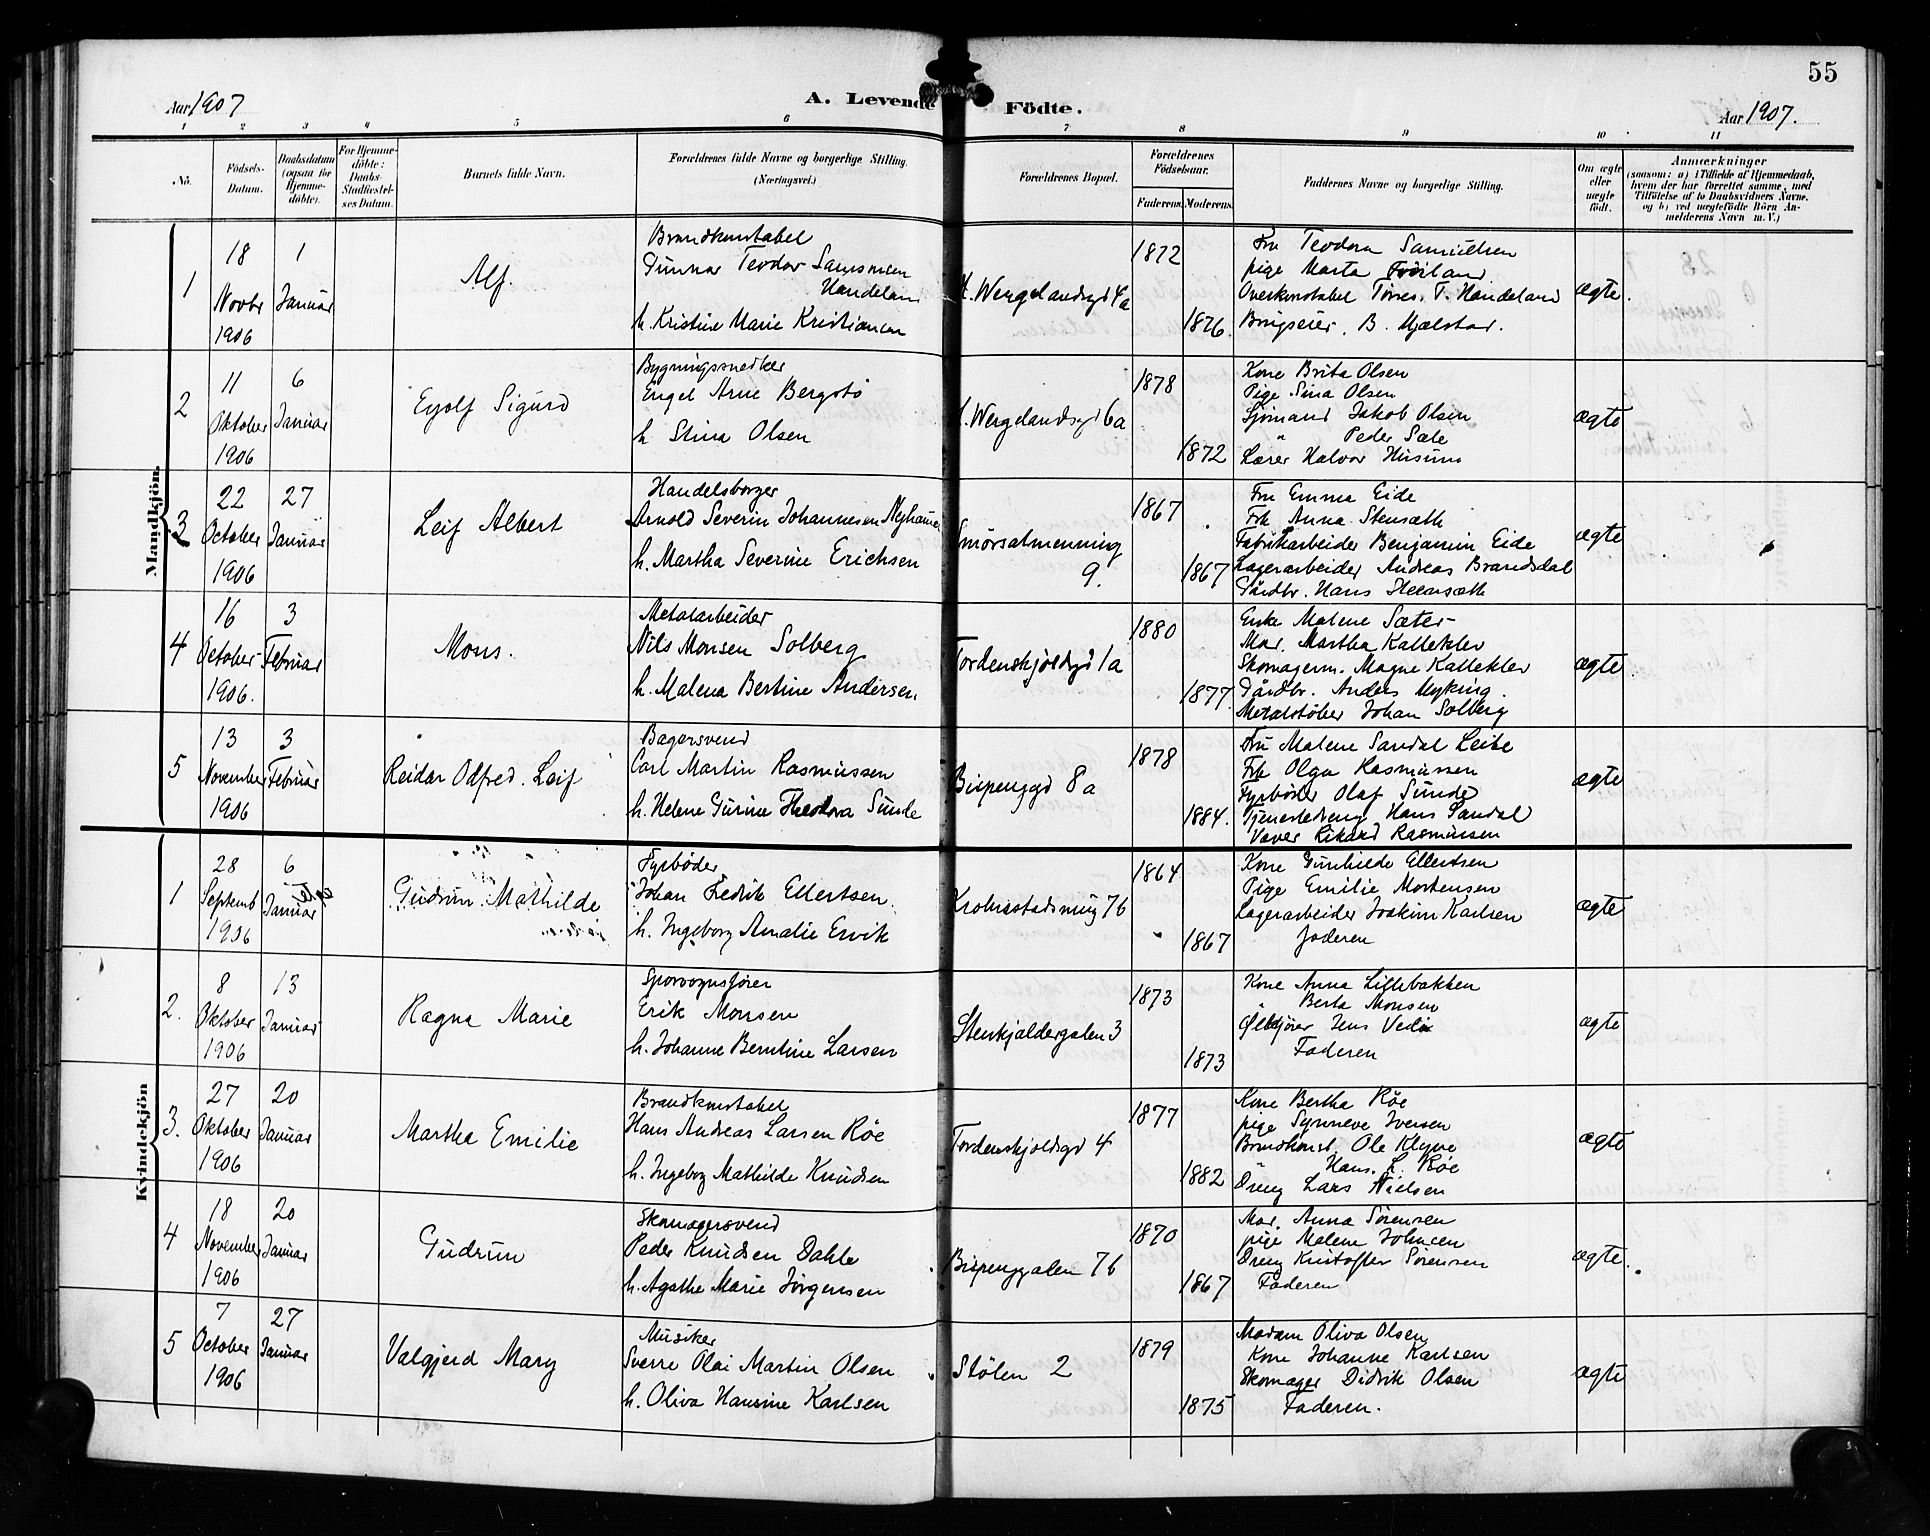 55
Aar 1907
A. Levende Födte.
Aar 1907.
1 2 3 4 5 6 7 8 9 10 11
No.
Födsels-Datum.
Daabsdatum (ogsaa for Hjemme-döbte).
For Hjemme-döbte: Daabs-Stadfæstel-ses Datum.
Barnets fulde Navn.
Forældrenes fulde Navne og borgerlige Stilling. (Næringsvei.)
Forældrenes Bopæl.
Forældrenes Födselsaar.
Faderens. Moderens.
Faddernes Navne og borgerlige Stilling.
Om ægte eller uægte födt.
Anmærkninger (saasom: a) i Tilfælde af Hjemmedaab, hvem der har forrettet samme, med Tilföielse af to Daabsvidners Navne, og b) ved uægtefödte Börn An-melderens Navn m. V.)
Mandkjön
1
18 Novbr 1906
1 Januar
Alf.
Brandkonstabel
Gunnar Teodor Samsonsen
Handeland
h. Kristine Marie Kristiansen
H. Wergelandsgd 4a
1872
1876.
Fru Teodora Samuelsen
pige Marta Fröiland
Overkonstabel Törres. T. Handeland
B. Mjelstad.
ægte.
2
11 Oktober 1906
6 Januar
Eyolf Sigurd
Bygningssnedker
Engel Arne Bergstö
h Stina Olsen
H. Wergelandsgd 6a
1878
1872
Kone Brita Olsen
Pige Sina Olsen
Sjömand Jakob Olsen
" Peder Sæle
Lærer Halvor Husum
ægte
3
22 October 1906
27 Januar
Leif Albert
Handelsborger
Arnold Severin Johannesen Nyhamer
h. Martha Severine Erichsen
Smörsalmenning 9.
1867
1867
Fru Emma Eide
Frk Anna Stensæth
Fabrikarbeider Benjamin Eide
Lagerarbeider Andreas Brandsdal
Gårdbr. Hans Stensæth
ægte
4
16 October 1906.
3 Februar
Mons.
Metalarbeider
Nils Monsen Solberg
h. Malena Bertine Andersen
Tordenskjoldsgd 1a
1880
1877.
Enke Malene Sæter
Mad. Martha Kallekler
Skomagerm. Magne Kallekler
Gårdbr. Anders Myking.
Metalstöber Johan Solberg
ægte.
5
13 November 1906
3 Februar
Reidar Odfred. Leif
Bagersvend
Carl Martin Rasmussen
h. Helene Gurine Theodora Sunde
Bispenggd 8a
1878
1884.
Fru Malene Sandal Leite
Frk Olga Rasmussen
Fyrböder Olaf Sunde
Tjenestedreng Hans Sandal
Væver Rikard Rasmussen
ægte
Kvindekjön
1
28 Septemb 1906
6 Januar
Gudrun Mathilde
Fyrböder
Johan Fredrik Ellertsen.
h. Ingeborg Amalie Ervik
Krohnstadsmug 7b
1864
1867
Kone Gunhilde Ellertsen
Pige Emilie Mortensen
Lagerarbeider Joakim Karlsen
faderen
ægte
2.
8 Oktober 1906
13 Januar
Ragna Marie
Sporvognsfører
Erik Monsen
h. Johanne Berntine Larsen
Stenkjeldergaten 3
1873
1873
Kone Anna Lillebakken
" Berta Monsen
Ølkjører Jens Vedø
Faderen
ægte
3.
27 Oktober 1906
20 Januar
Martha Emilie
Brandkonstabel
Hans Andreas Larsen Røe
h. Ingeborg Mathilde Knudsen
Tordenskjoldsgd 4
1877
1882
Kone Bertha Røe
pige Synneve Iversen
Brandkonst. Ole Klyve
Hans. L. Røe
Dreng Lars Nielsen
ægte
4
18 November 1906
20 Januar
Gudrun
Skomagersvend
Peder Knudsen Dahle
h. Agathe Marie Jørgensen
Bispenggaten 7b
1870
1867
Mad. Anna Sørensen
pige Malene Johnsen
Dreng Kristoffer Sørensen
Faderen
ægte.
5
7 October 1906
27 Januar
Valgjerd Mary
Musiker
Sverre Olai Martin Olsen
h. Oliva Hansine Karlsen
Stølen 2
1879
1875
Madam Oliva Olsen
Kone Johanne Karlsen
Skomager Didrik Olsen
Faderen.
ægte